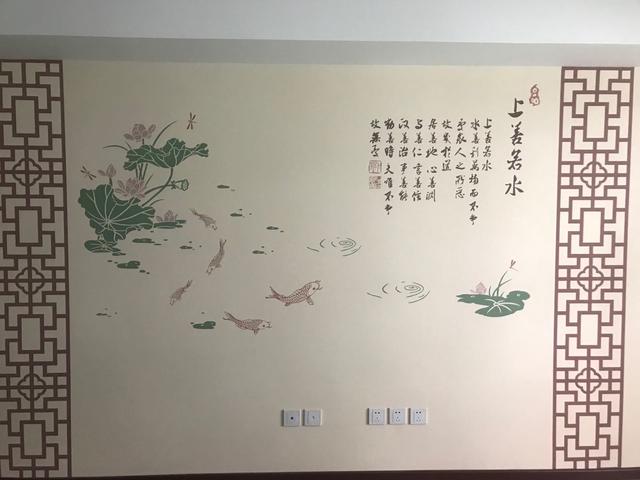 上善若水
上善若水
水善利萬物而不争
處衆人之所惡
故幾於道
居善地 心善淵
与善仁 言善信
政善治 事善能
動善時 夫唯不争
故無尤